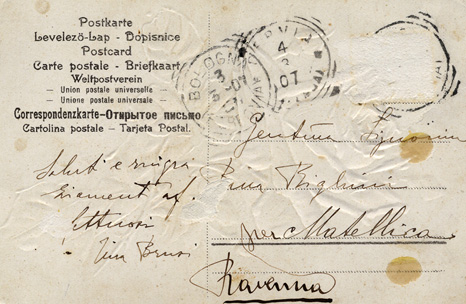 Postkarte
Levelezö-Lap - Dopisnice
Postcard
Carte postale - Briefkaart
Weltpostverein
- Union postale universelle -
- Unione postale universale -
Correspondenzkarte-Открытое письмо
Cartolina postale - Tarjeta Postal.
BOLOGNA
3
07
CERVIA
4
3
07
Gentma Signorina
Saluti e ringra
ziamenti aff.
Pina
per Matellica
Ravenna